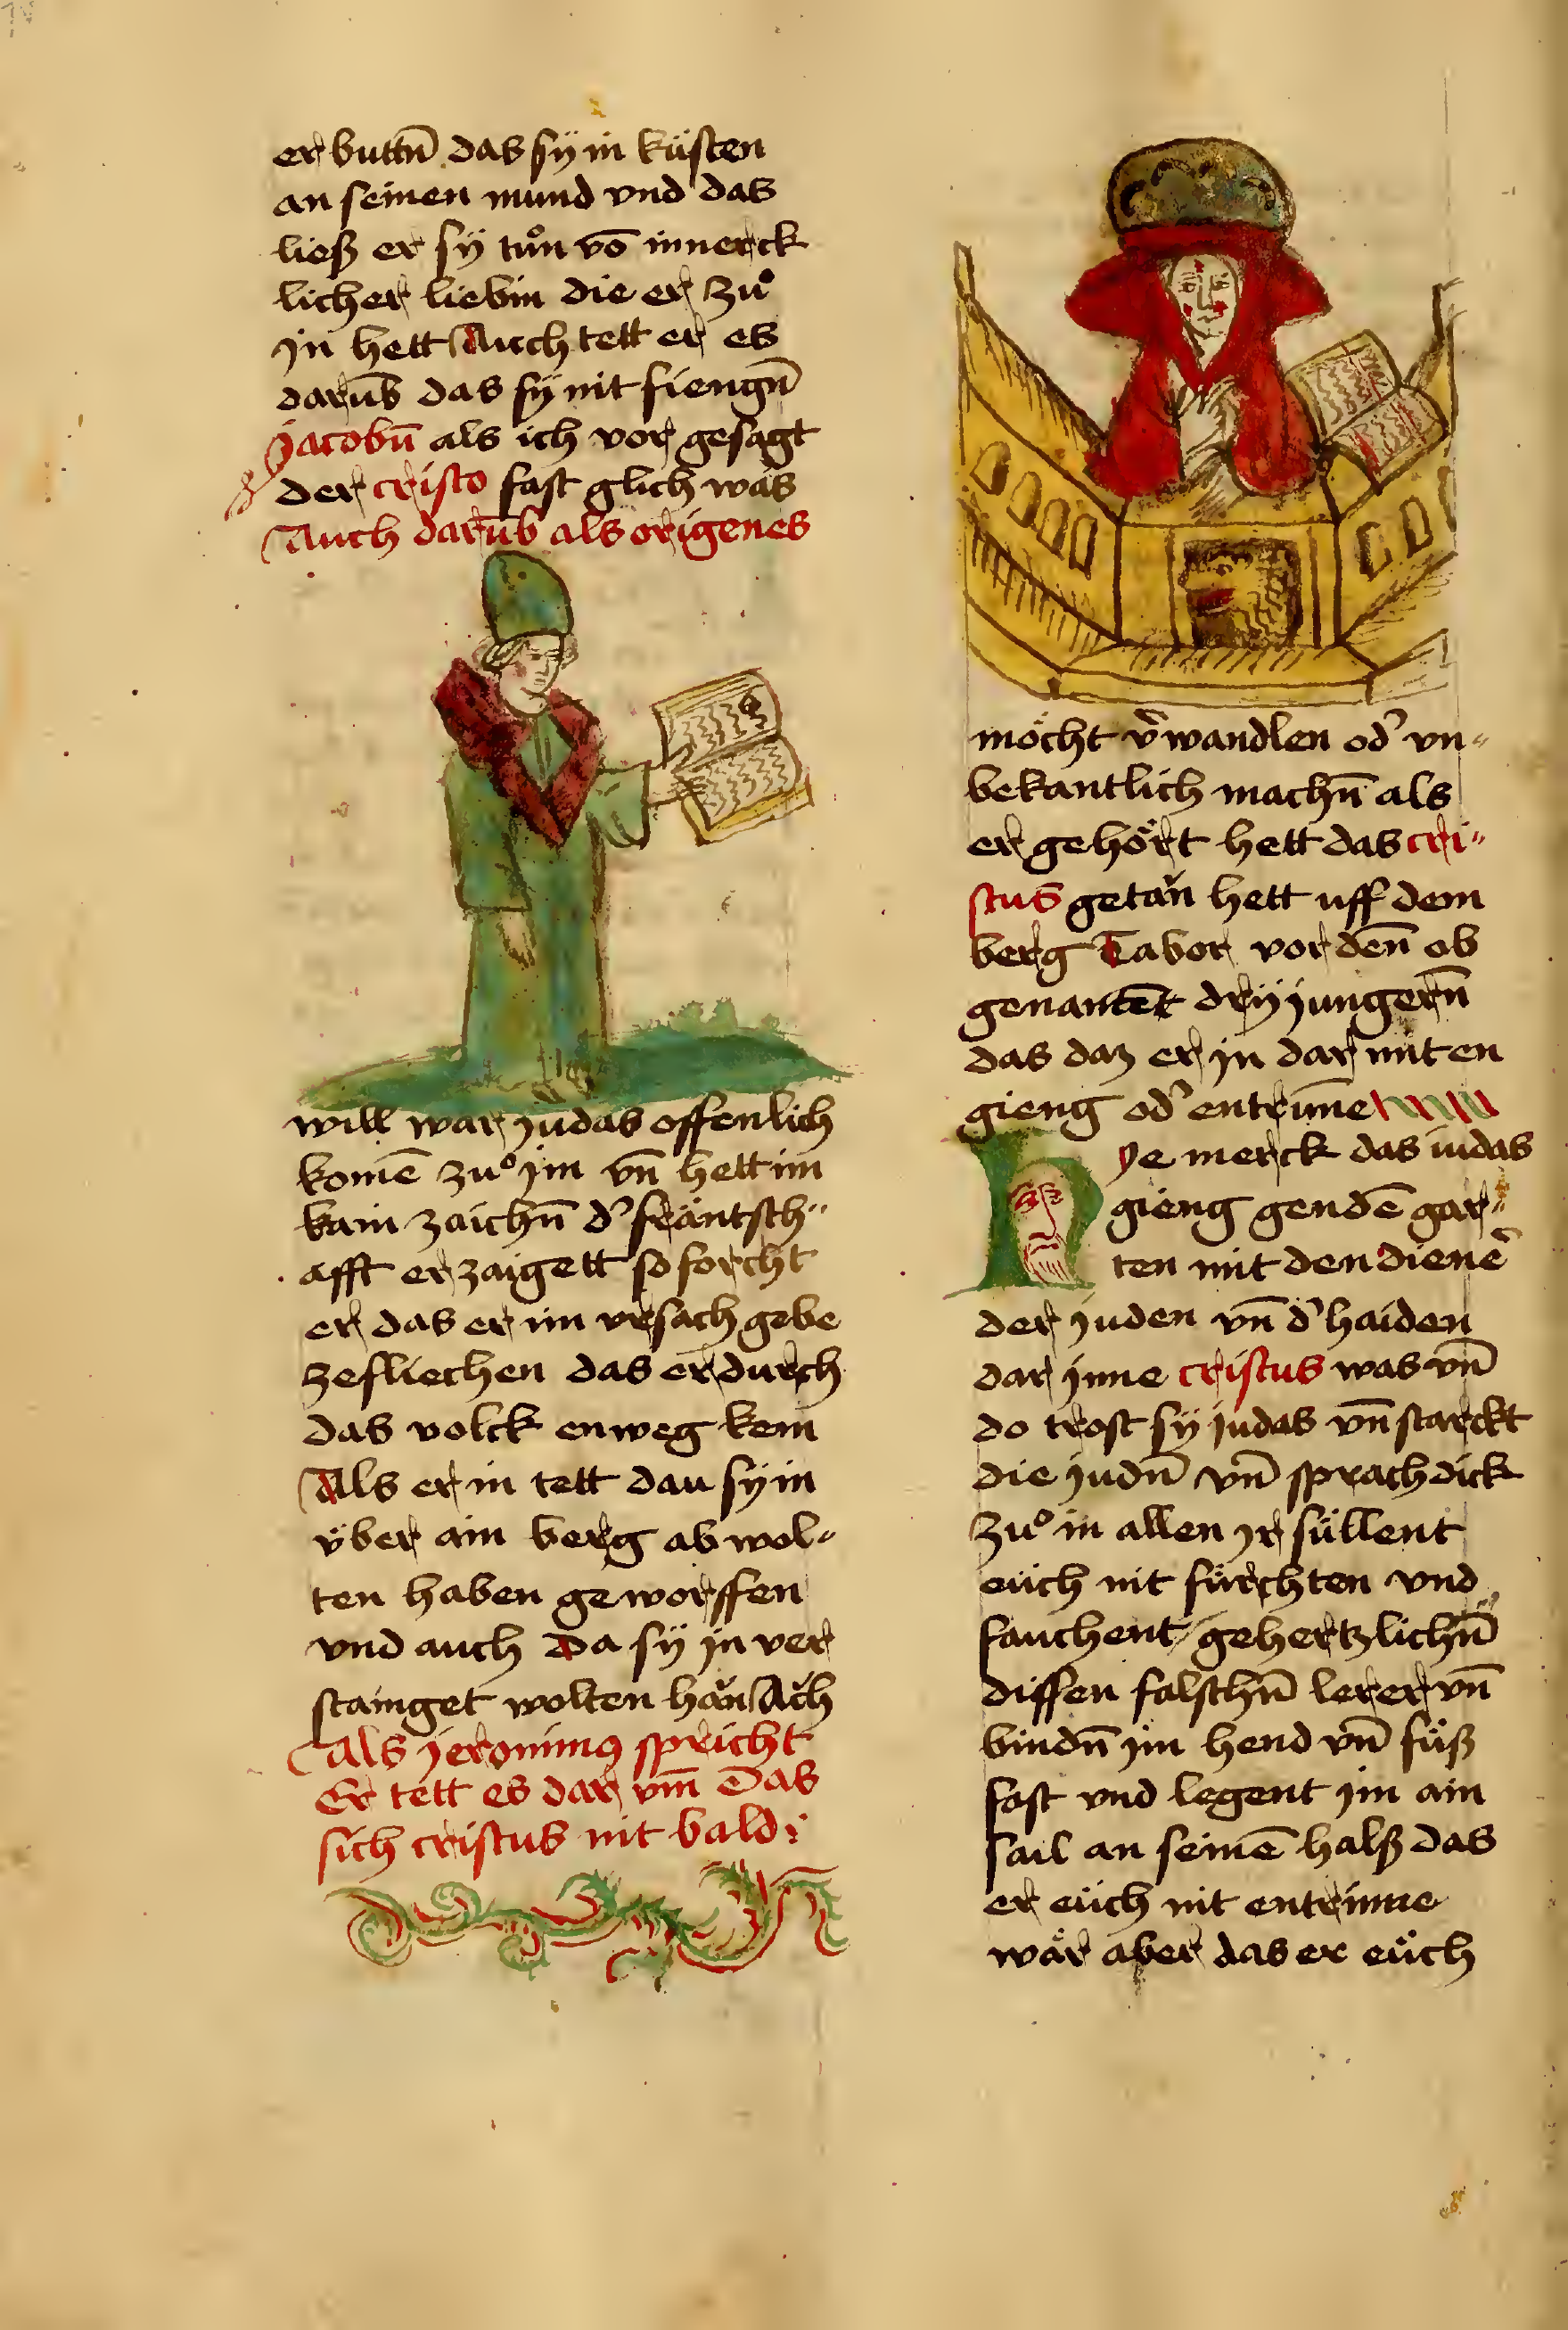 er buttn̄ das sÿ in küsten
an seinen mund vnd das
ließ er sÿ tuͦn vō innerck
licher liebin die er zuͦ
jn hett Auch tett er es
darūb das sÿ nit fiengn̄
jacobn̄ als ich vor gesagt
der cristo fast glich was
Auch darūb als origenes
will war judas offenlich
komē zuͦ jm vn̄ hett im
kain zaichn̄ d' fräntsch"
afft erzaigett so forcht
er das er im vrsach gebe
zefliechen das er durch
das volck enweg kem
Als er in tett dau sÿ in
über ain berg ab wol-
ten haben geworffen
vnd auch da sÿ jn ver
stainget wolten hăn Ăch
Als jeronimꝰ spricht
Er tett es dar vm̄ Das
sich cristus nit bald
möcht v'wandlen od' vn-
bekantlich machn̄ als
er gehört hett das cri-
stus getăn hett uff dem
berg Tabor vor den̄ ob
genantēt drÿ jungern̄
das daz er jn dar mit en
gieng od' entrūne
Hye merck das iudas
gieng gendē gar-
ten mit den dienē'
der juden vn̄ d' haiden
dar jnne cristus was vn̄
do trost sÿ judas vn̄ starckt
die judn̄ vn̄ sprach dick
zuͦ in allen jr süllent
eüch nit fürchten vnd
fauchent gehertzlichn̄
dissen falschn̄ lerer vn̄
bindn̄ jm hend vn̄ füß
fast vnd legent jm ain
sail an seinē halß das
er eüch nit entrinne
wär aber das er eüch